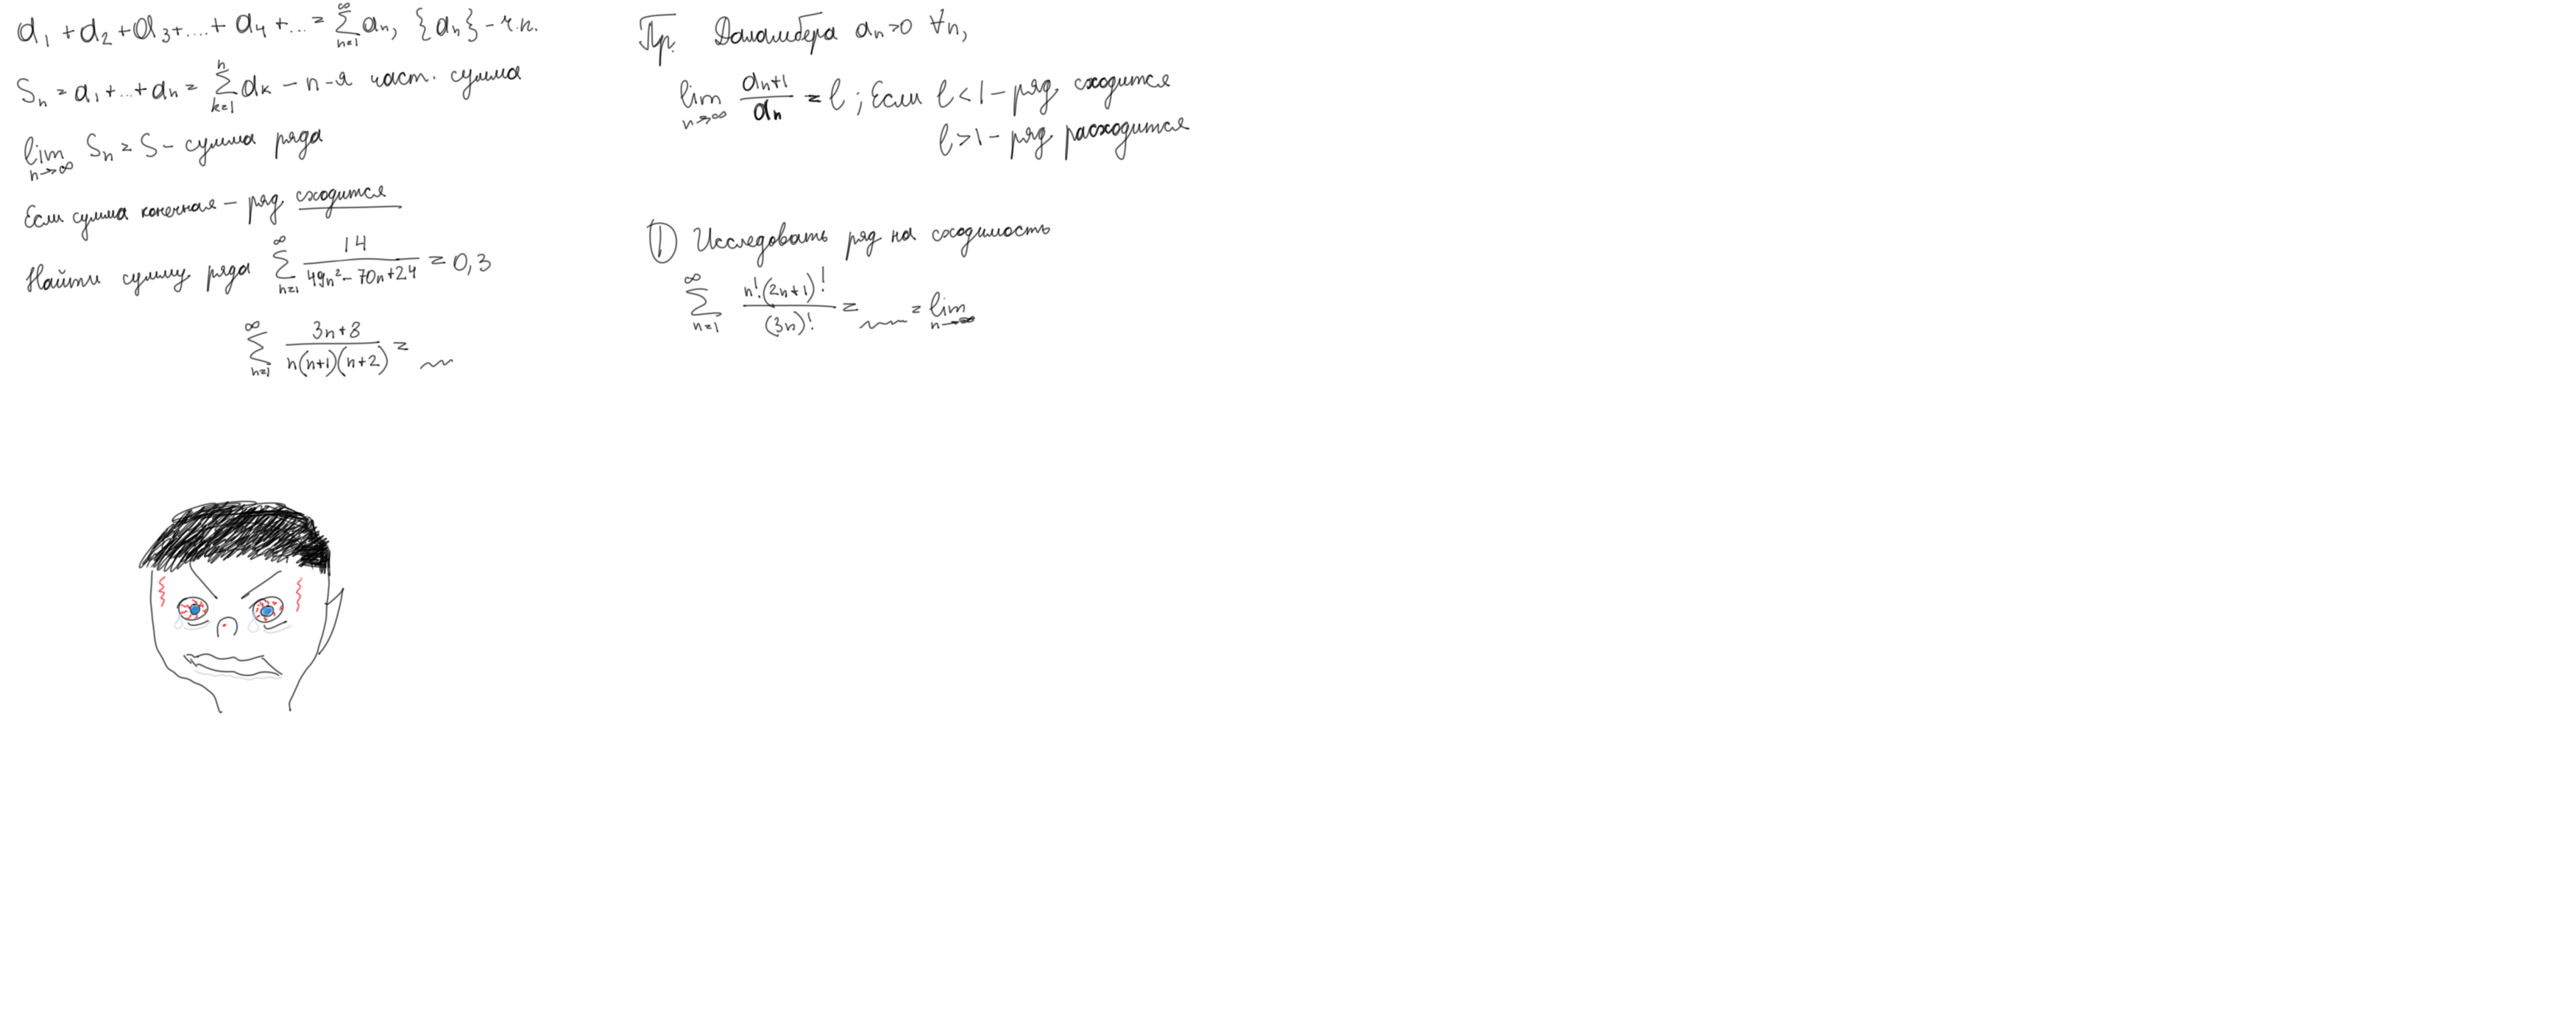 a₁ + a₂ + a₃ + .... + a₄ + ... = ∑_{n=1}^{∞} aₙ, {aₙ} – ч.п.
Sₙ = a₁ + ... + aₙ = ∑_{k=1}^{n} aₖ – n-я част. сумма
lim_{n→∞} Sₙ = S – сумма ряда
Если сумма конечная – ряд сходится
Найти сумму ряда ∑_{n=1}^{∞} 14/(49n² – 70n + 24) = 0,3
∑_{n=1}^{∞} (3n+8)/(n(n+1)(n+2)) =
Пр. Даламбера aₙ>0 ∀n,
lim_{n→∞} aₙ₊₁/aₙ = l ; Если l < 1 – ряд сходится
l > 1 – ряд расходится
① Исследовать ряд на сходимость
∑_{n=1}^{∞} n!(2n+1)!/(3n)! = = lim_{n→∞}